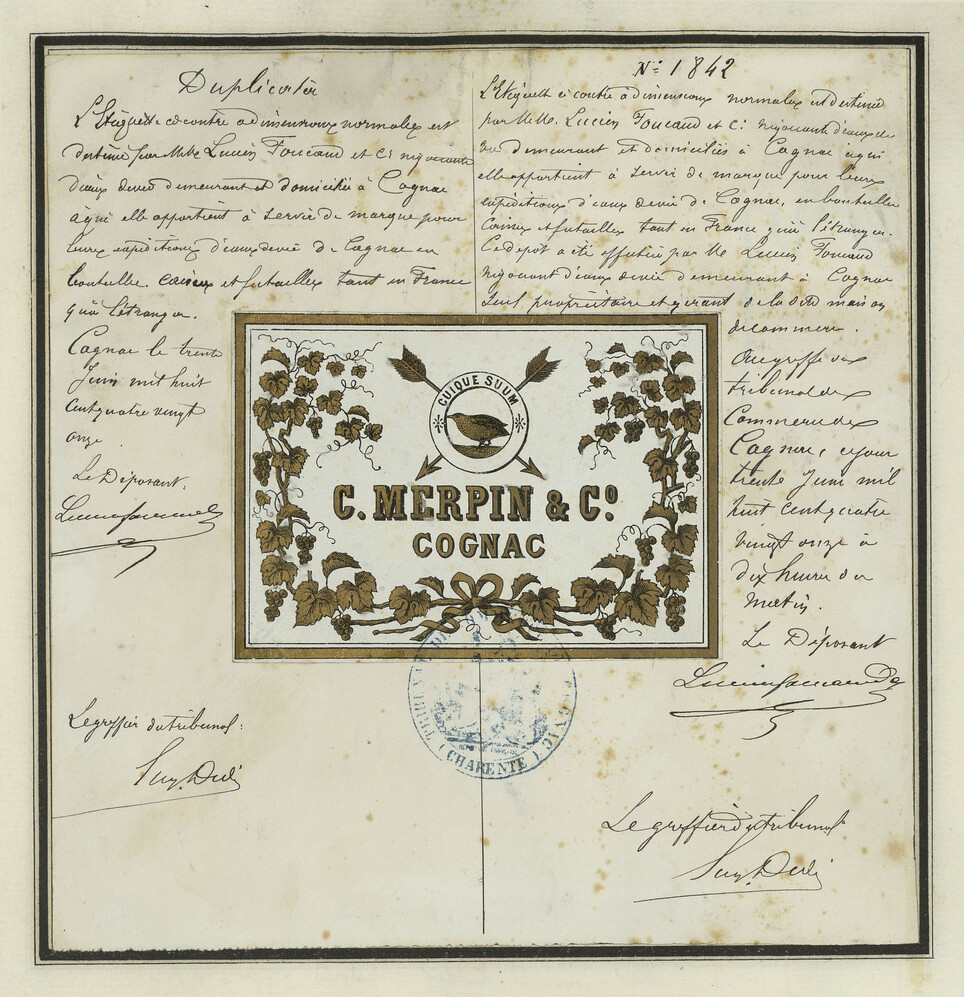 Duplicata
L'Etiquette ci contre a dimensions normales est
destinée par MMrs Lucien Foucaud et Cie négociants
d'eaux devie demeurant et domiciliés à Cognac
à qui elle appartient à servir de marque pour
leurs expéditions d'eaux devie de Cognac en
bouteilles, caisses et futailles tant en France
qu'à l'étranger.
Cognac le trente
Juin mil huit
cent quatre vingt
onze.
Le Déposant,
Le greffier du tribunal:
No: 1842
L'Etiquette ci contre a dimensions normales est destinée
par MMrs. Lucien Foucaud et Cie négociants d'eaux de
vie demeurant et domiciliés à Cognac à qui
elle appartient à servir de marque pour leurs
expéditions d'eaux devie de Cognac, en bouteilles
caisses et futailles tant en France qu'à l'étranger.
Ce dépot a été effectué par Mr Lucien Foucaud
négociant d'eaux devie demeurant à Cognac
seul propriétaire et gérant de la dite maison
de commerce.
Au greffe du
tribunal de
Commerce de
Cognac, ce jour
trente Juin mil
huit cent quatre
vingt onze à
dix heures du
matin.
Le Déposant
Le greffier du tribunal
CUIQUE SUUM
C. MERPIN & Co.
COGNAC
(CHARENTE)